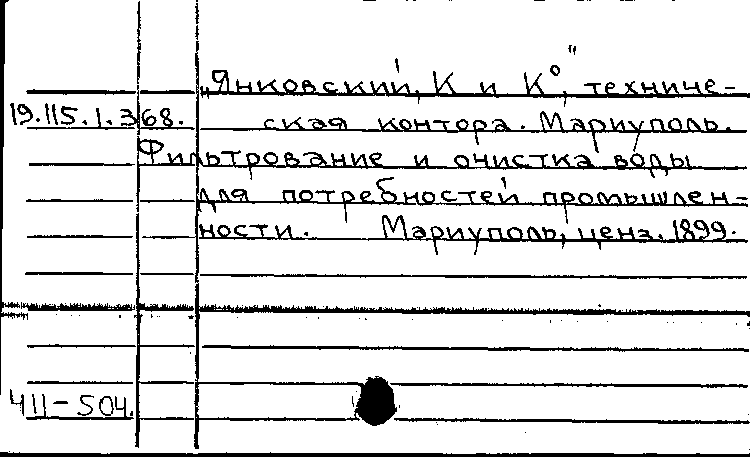 „Янковский, К и К°", техниче-
19.115.1.368. ская контора. Мариуполь.
Фильтрование и очистка воды
для потребностей промышлен-
ности. Мариуполь, ценз. 1899.
411-504.